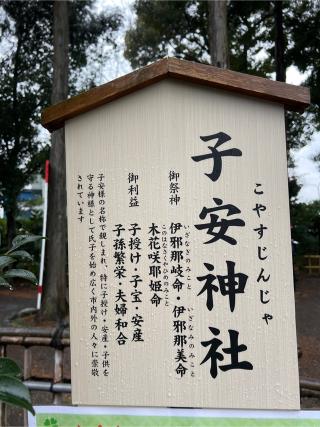 子安神社
こやすじんじゃ
御祭神
伊邪那岐命・伊邪那美命
いざなぎのみこと
いざなみのみこと
木花咲耶姫命
このはなさくやひめのみこと
御利益
子授け・子宝・安産
子孫繁栄・夫婦和合
子安様の名称で親しまれ、特に子授け・安産・子供を
守る神様として氏子を始め広く市内外の人々に崇敬
されています